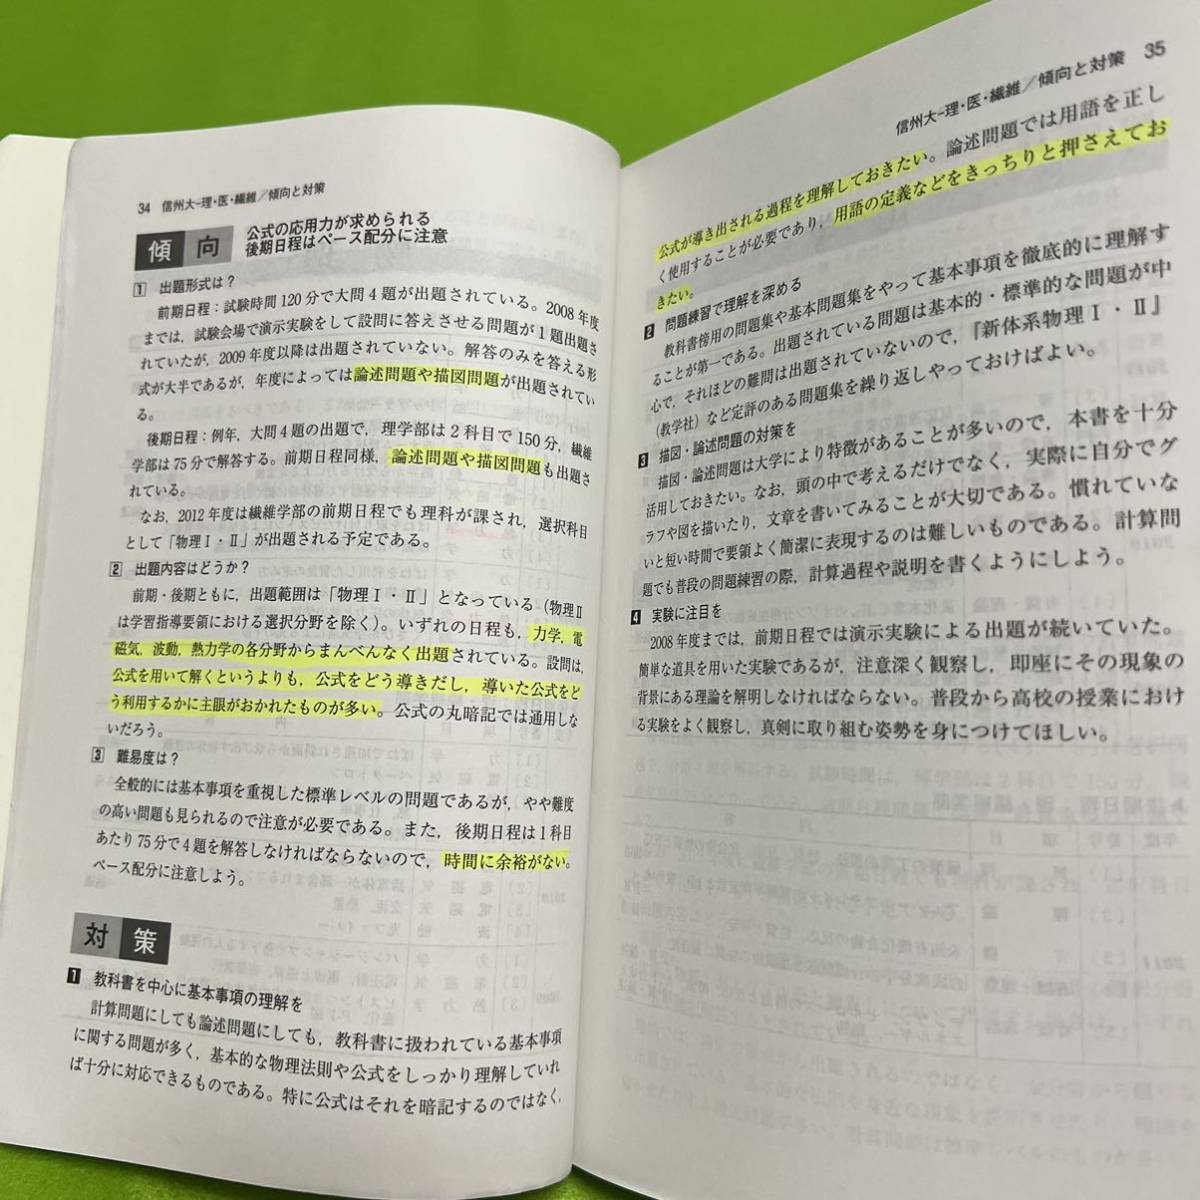 34 信州大-理・医・繊維／傾向と対策
傾向
公式の応用力が求められる
後期日程はペース配分に注意
1 出題形式は？
前期日程：試験時間120分で大問4題が出題されている。2008年度
までは，試験会場で演示実験をして設問に答えさせる問題が1題出題さ
れていたが，2009年度以降は出題されていない。解答のみを答える形
式が大半であるが，年度によっては論述問題や描図問題が出題されてい
る。
後期日程：例年，大問4題の出題で，理学部は2科目で150分，繊維
学部は75分で解答する。前期日程同様，論述問題や描図問題も出題さ
れている。
なお，2012年度は繊維学部の前期日程でも理科が課され，選択科目
として「物理Ⅰ・Ⅱ」が出題される予定である。
2 出題内容はどうか？
前期・後期ともに，出題範囲は「物理Ⅰ・Ⅱ」となっている（物理Ⅱ
は学習指導要領における選択分野を除く）。いずれの日程も，力学，電
磁気，波動，熱力学の各分野からまんべんなく出題されている。設問は，
公式を用いて解くというよりも，公式をどう導きだし，導いた公式をど
う利用するかに主眼がおかれたものが多い。公式の丸暗記では通用しな
いだろう。
3 難易度は？
全般的には基本事項を重視した標準レベルの問題であるが，やや難度
の高い問題も見られるので注意が必要である。また，後期日程は1科目
あたり75分で4題を解答しなければならないので，時間に余裕がない。
ペース配分に注意しよう。
対策
1 教科書を中心に基本事項の理解を
計算問題にしても論述問題にしても，教科書に扱われている基本事項
に関する問題が多く，基本的な物理法則や公式をしっかり理解していれ
ば十分に対応できるものである。特に公式はそれを暗記するのではなく，
信州大-理・医・繊維／傾向と対策 35
公式が導き出される過程を理解しておきたい。論述問題では用語を正し
く使用することが必要であり，用語の定義などをきっちりと押さえてお
きたい。
2 問題練習で理解を深める
教科書傍用の問題集や基本問題集をやって基本事項を徹底的に理解す
ることが第一である。出題されている問題は基本的・標準的な問題が中
心で，それほどの難問は出題されていないので，『新体系物理Ⅰ・Ⅱ』
（教学社）など定評のある問題集を繰り返しやっておけばよい。
3 描図・論述問題の対策を
描図・論述問題は大学により特徴があることが多いので，本書を十分
活用しておきたい。なお，頭の中で考えるだけでなく，実際に自分でグ
ラフや図を描いたり，文章を書いてみることが大切である。慣れていな
いと短い時間で要領よく簡潔に表現するのは難しいものである。計算問
題でも普段の問題練習の際，計算過程や説明を書くようにしよう。
4 実験に注目を
2008年度までは，前期日程では演示実験による出題が続いていた。
簡単な道具を用いた実験であるが，注意深く観察し，即座にその現象の
背景にある理論を解明しなければならない。普段から高校の授業におけ
る実験をよく観察し，真剣に取り組む姿勢を身につけてほしい。